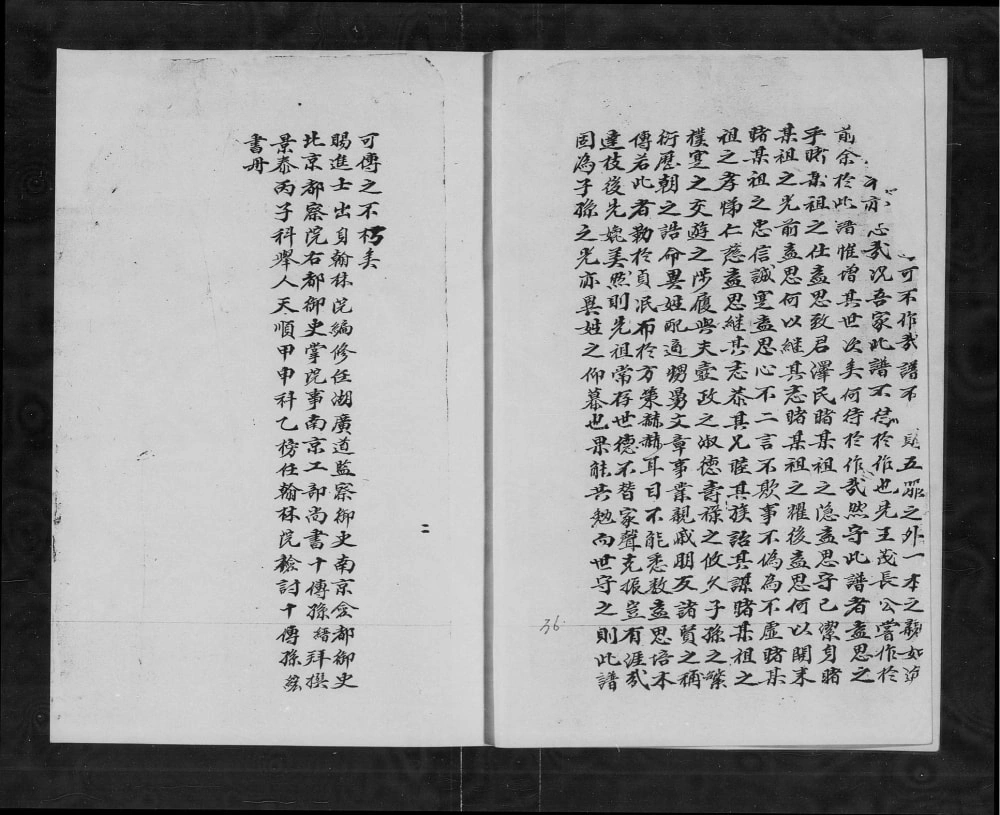 可不作哉譜不 則五服之外一本之親如途
亦 心哉况吾家此譜不待於作也先王茂長公嘗作於
前余於此譜惟增其世次矣何待於作哉然守此譜者盍思之
乎睹某祖之仕盍思致君澤民睹某祖之隐盍思守己潔身睹
某祖之光前盍思何以継其志睹某祖之耀後盍思何以開末
睹某祖之忠信誠寔盍思心不二言不欺事不偽為不虚睹某
祖之孝悌仁慈盍思継其志恭其兄睦其族詒其謀睹某祖之
樸寔之交遊之渉履與夫壼政之淑德壽禄之攸久子孫之繁
衍歴朝之誥命異姓配適甥舅文章事業親戚朋友諸賢之稱
傳若此者勒於貞泯布於方策赫赫耳目不能悉数盍思培本
達枝後先媲美然則先祖常存世德不替家聲克振豈有涯哉
固為子孫之光亦異姓之仰慕也果能共勉而世守之則此譜
36
可傳之不朽矣
賜進士出身翰林院編修任湖廣道監察御史南京僉都御史
北京都察院右都御史掌院事南京工部尚書十傳孫 拜撰
景泰丙子科舉人天順甲申科乙榜任翰林院檢討十傳孫
書丹